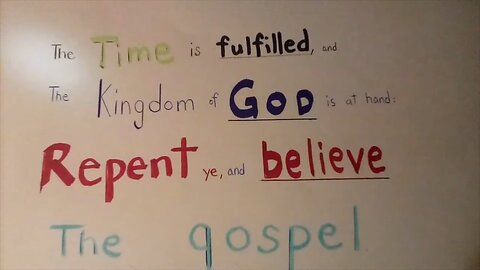 The Time is fulfilled, and
The Kingdom of GOD is at hand:
Repent ye, and believe
The gospel